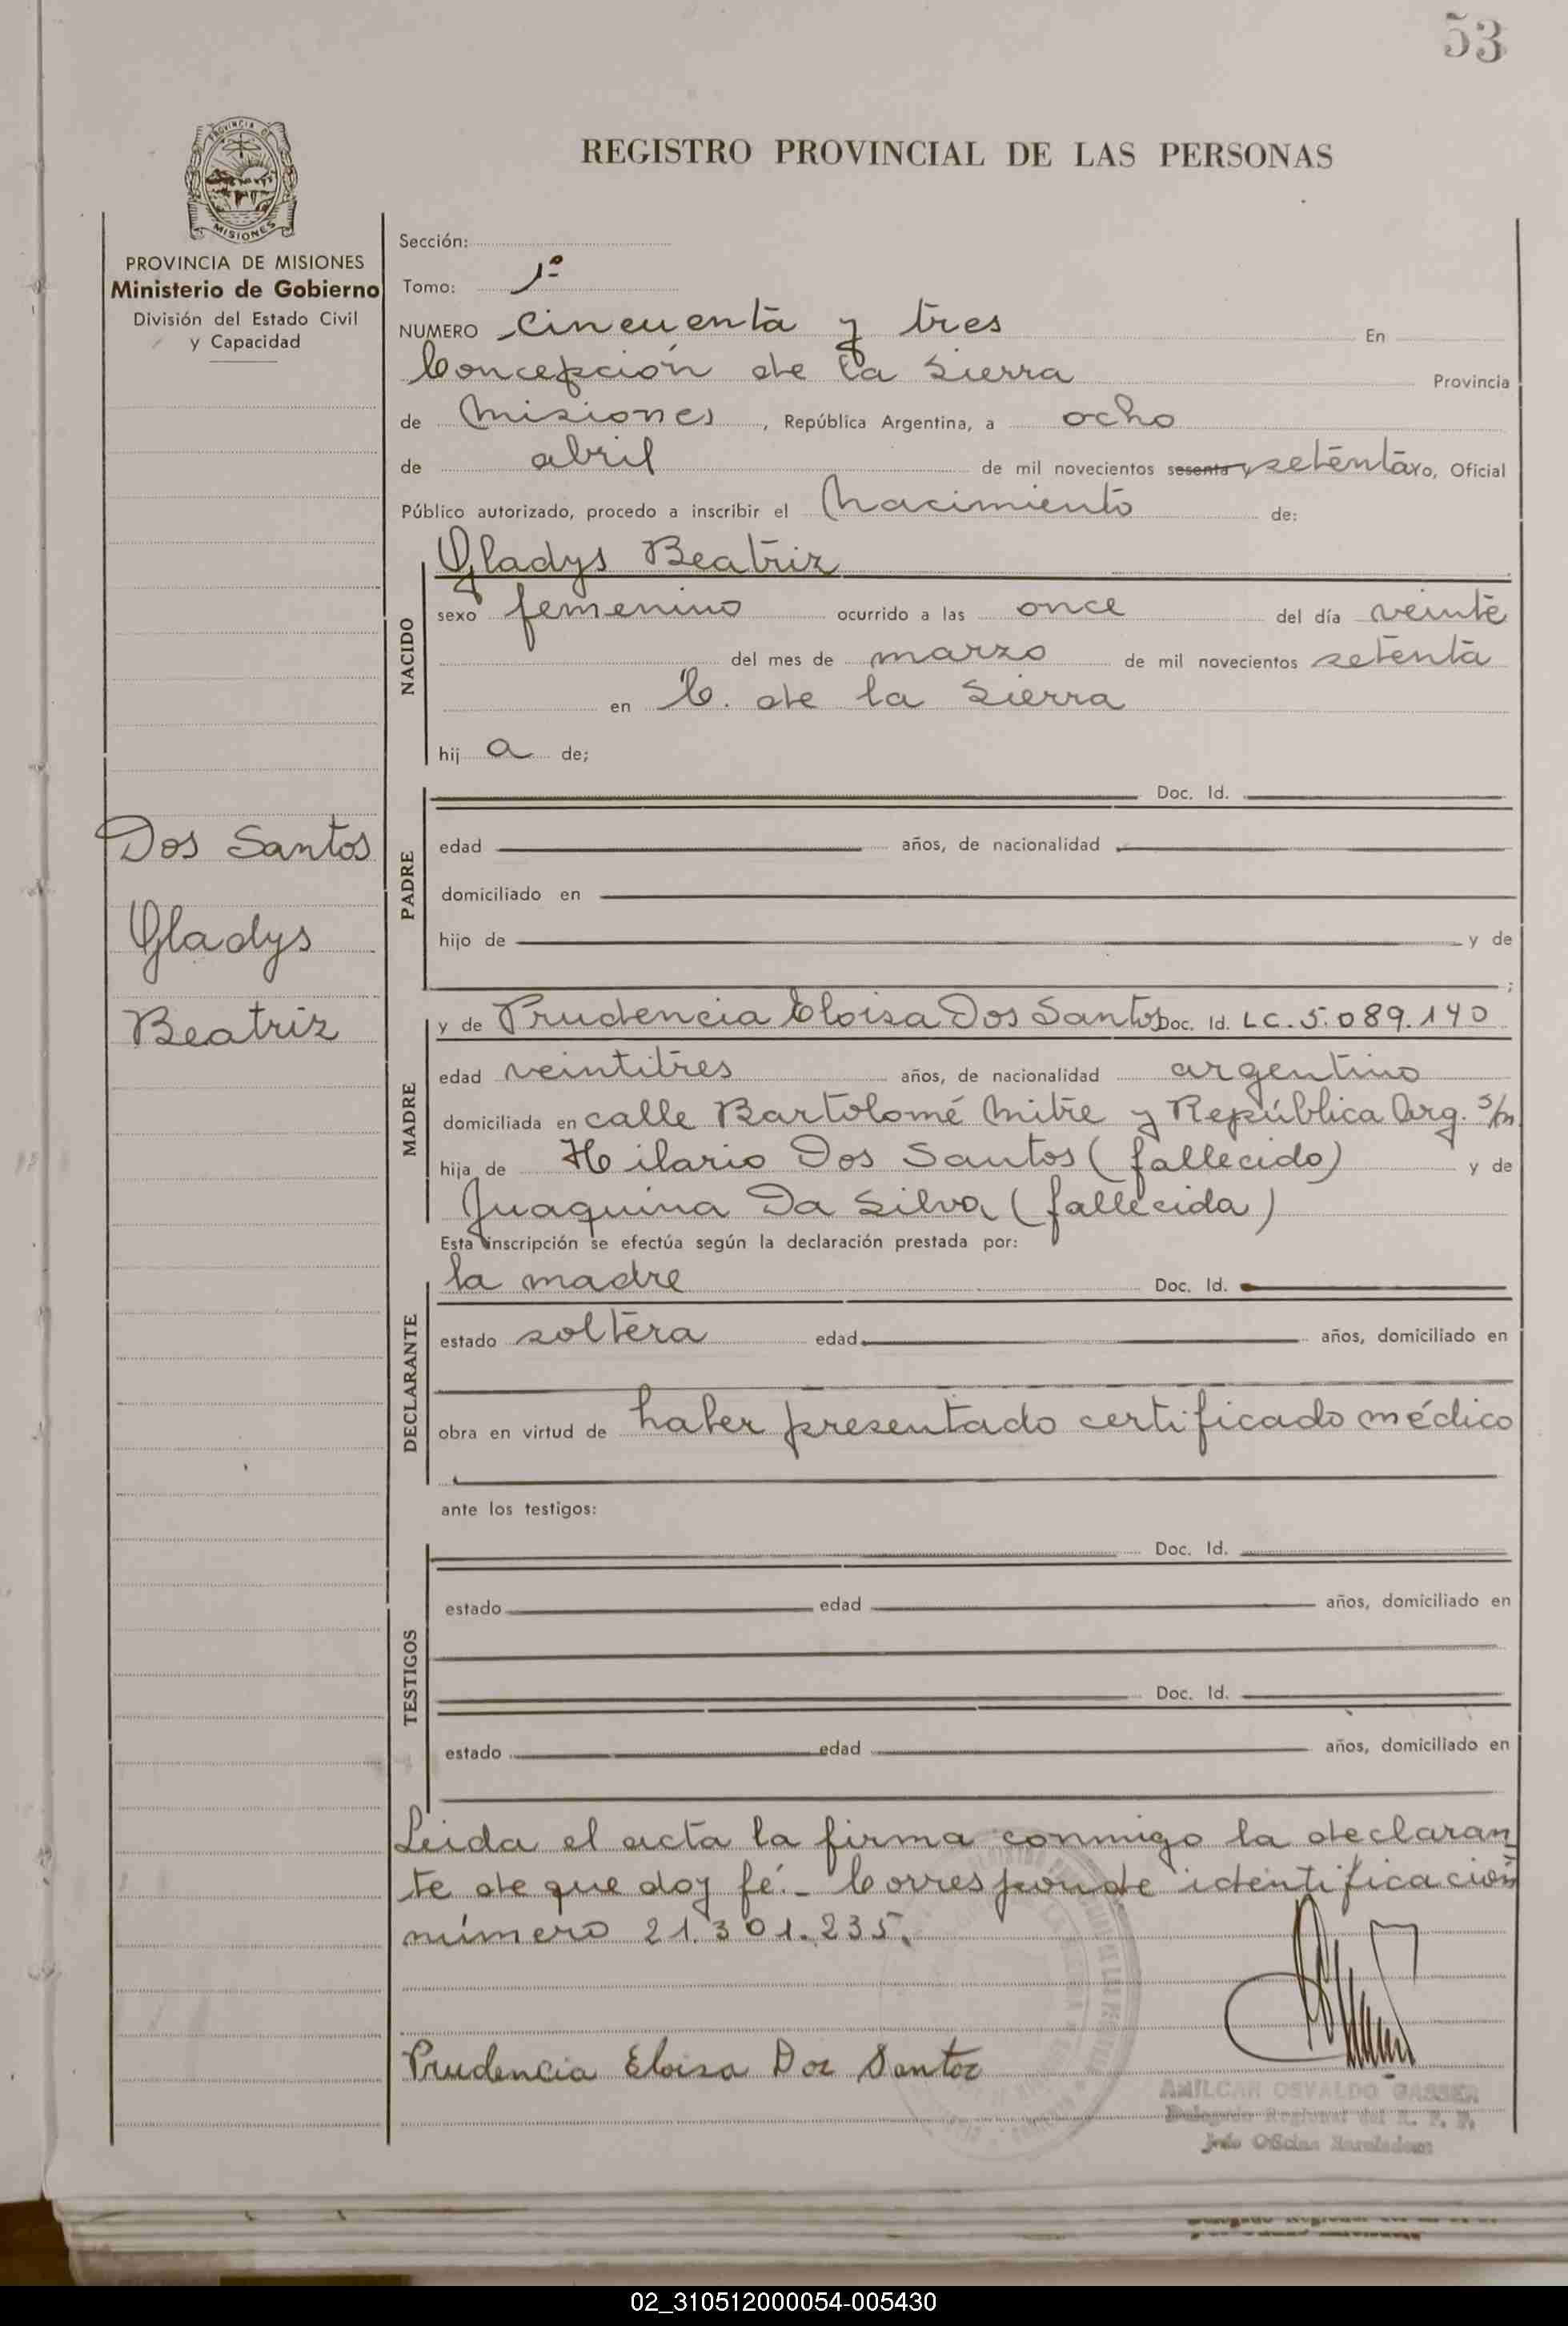 53
REGISTRO PROVINCIAL DE LAS PERSONAS
PROVINCIA DE
MISIONES
PROVINCIA DE MISIONES
Ministerio de Gobierno
División del Estado Civil
y Capacidad
Sección:
Tomo: 1º
NUMERO cincuenta y tres En
Concepción de la Sierra Provincia
de Misiones, República Argentina, a ocho
de abril de mil novecientos sesenta y setenta yo, Oficial
Público autorizado, procedo a inscribir el Nacimiento de:
NACIDO
Gladys Beatriz
sexo femenino ocurrido a las once del día veinte
del mes de marzo de mil novecientos setenta
en C. de la Sierra
hij a de;
Dos Santos
Gladys
Beatriz
PADRE
Doc. Id.
edad años, de nacionalidad
domiciliado en
hijo de y de
;
MADRE
y de Prudencia Eloisa Dos Santos Doc. Id. LC. 5.089.140
edad veintitres años, de nacionalidad argentino
domiciliada en calle Bartolomé Mitre y República Arg. s/n
hija de Hilario Dos Santos (fallecido) y de
Juaquina Da Silva (fallecida)
Esta inscripción se efectúa según la declaración prestada por:
DECLARANTE
la madre Doc. Id.
estado soltera edad años, domiciliado en
obra en virtud de haber presentado certificado médico
ante los testigos:
TESTIGOS
Doc. Id.
estado edad años, domiciliado en
Doc. Id.
estado edad años, domiciliado en
Leida el acta la firma conmigo la declaran
te de que doy fé.- Corresponde identificación
número 21.301.235.
Prudencia Eloisa Dos Santos
AMILCAR OSVALDO GASSER
Delegado Regional del R. P. P.
Jefe Oficina
02_310512000054-005430